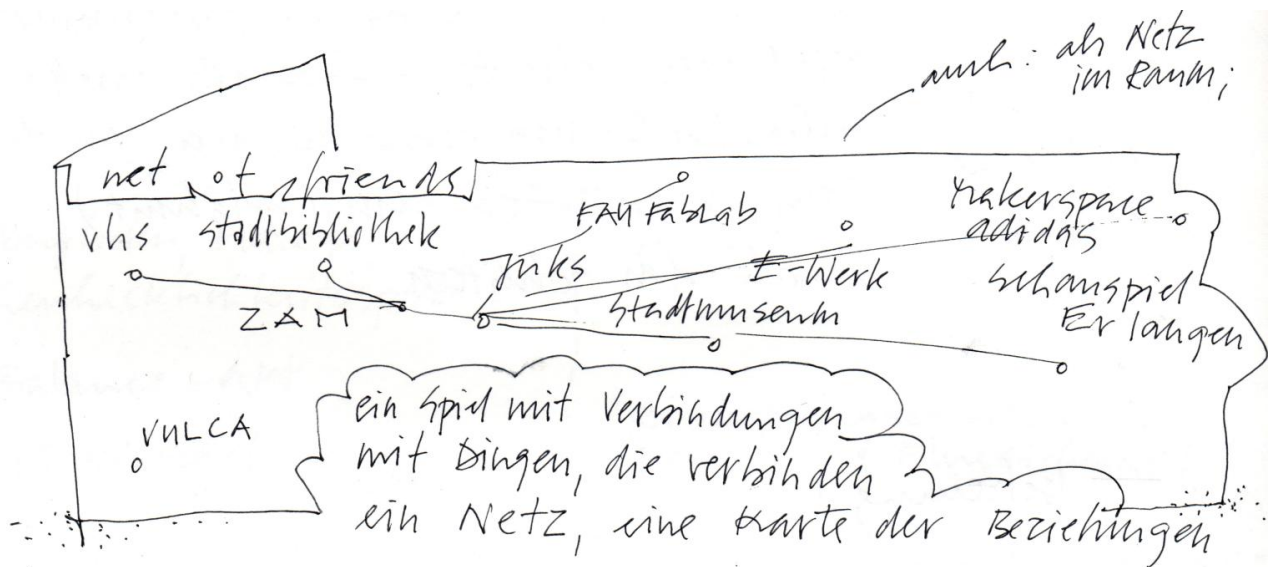 auch: als Netz
im Raum;
net of friends
vhs stadtbibliothek
FAU FabLab
makerspace
adidas
Juks
E-Werk
ZAM
Stadtmuseum
Schauspiel
Erlangen
VULCA
ein Spiel mit Verbindungen
mit Dingen, die verbinden
ein Netz, eine Karte der Beziehungen